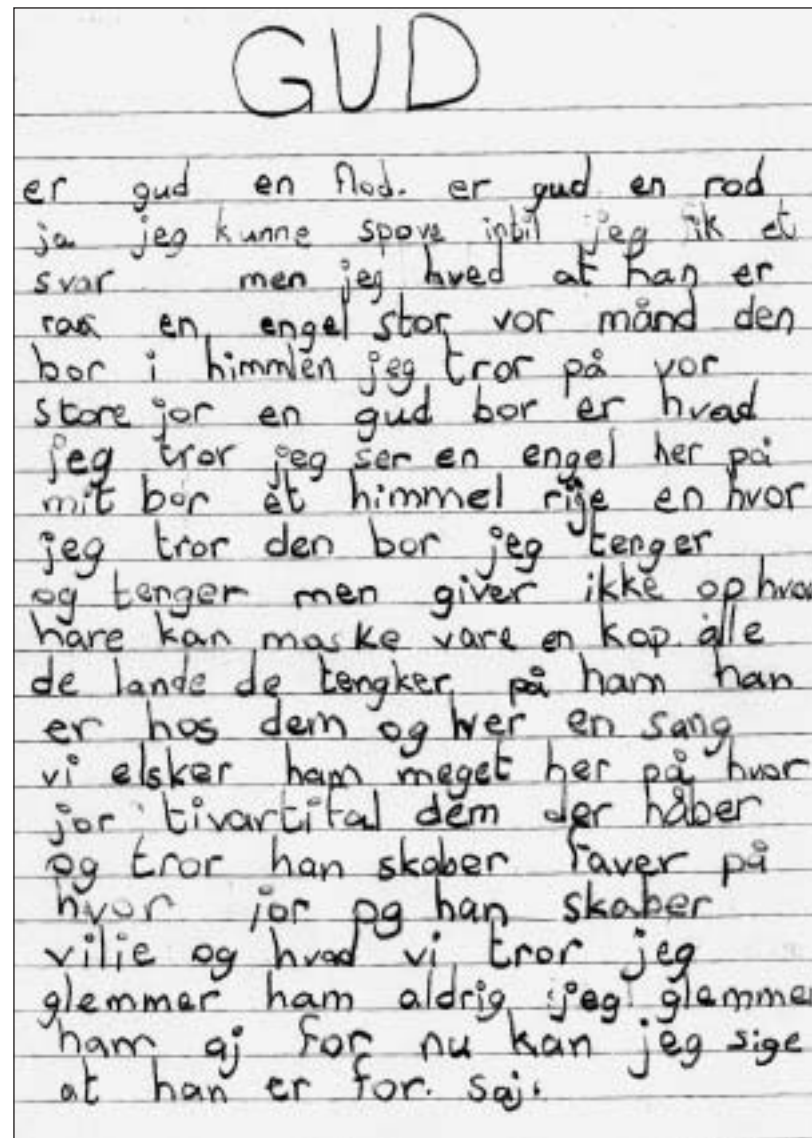 GUD
er gud en flod. er gud en rod
ja jeg kunne spøve intil jeg fik et
svar men jeg hved at han er
en engel stor vor månd den
bor i himmlen jeg tror på vor
store jor en gud bor er hvad
jeg tror jeg ser en engel her på
mit bor et himmel rije en hvor
jeg tror den bor jeg tenger
og tenger men giver ikke op hvad
hare kan maske vare en kop alle
de lande de tengker på ham han
er hos dem og hver en sang
vi elsker ham meget her på hvor
jor tivartital dem der håber
og tror han skaber faver på
hvor jor og han skaber
vilie og hvad vi tror jeg
glemmer ham aldrig jeg glemmer
ham aj for nu kan jeg sige
at han er for. saj.